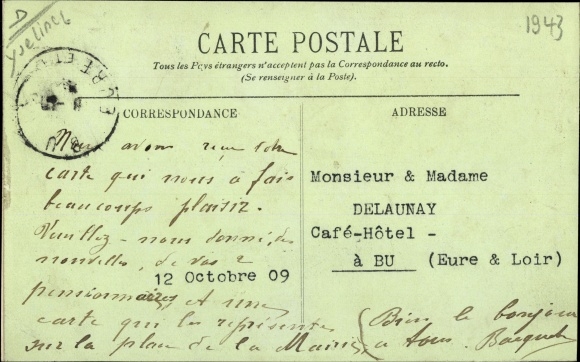 D
Yvelines
1943
CARTE POSTALE
Tous les Pays étrangers n'acceptent pas la Correspondance au recto.
(Se renseigner à la Poste).
CORRESPONDANCE
ADRESSE
BU
Nous avons reçu votre
carte qui nous a fais
beaucoups plaisir.
Veuillez-nous donné des
nouvelles, de vos 2
pensionnaires, et une
carte qui les représente
sur la place de la Mairie
Bien le bonjour
a tous.
Monsieur & Madame
DELAUNAY
Café-Hôtel -
à BU (Eure & Loir)
12 Octobre 09